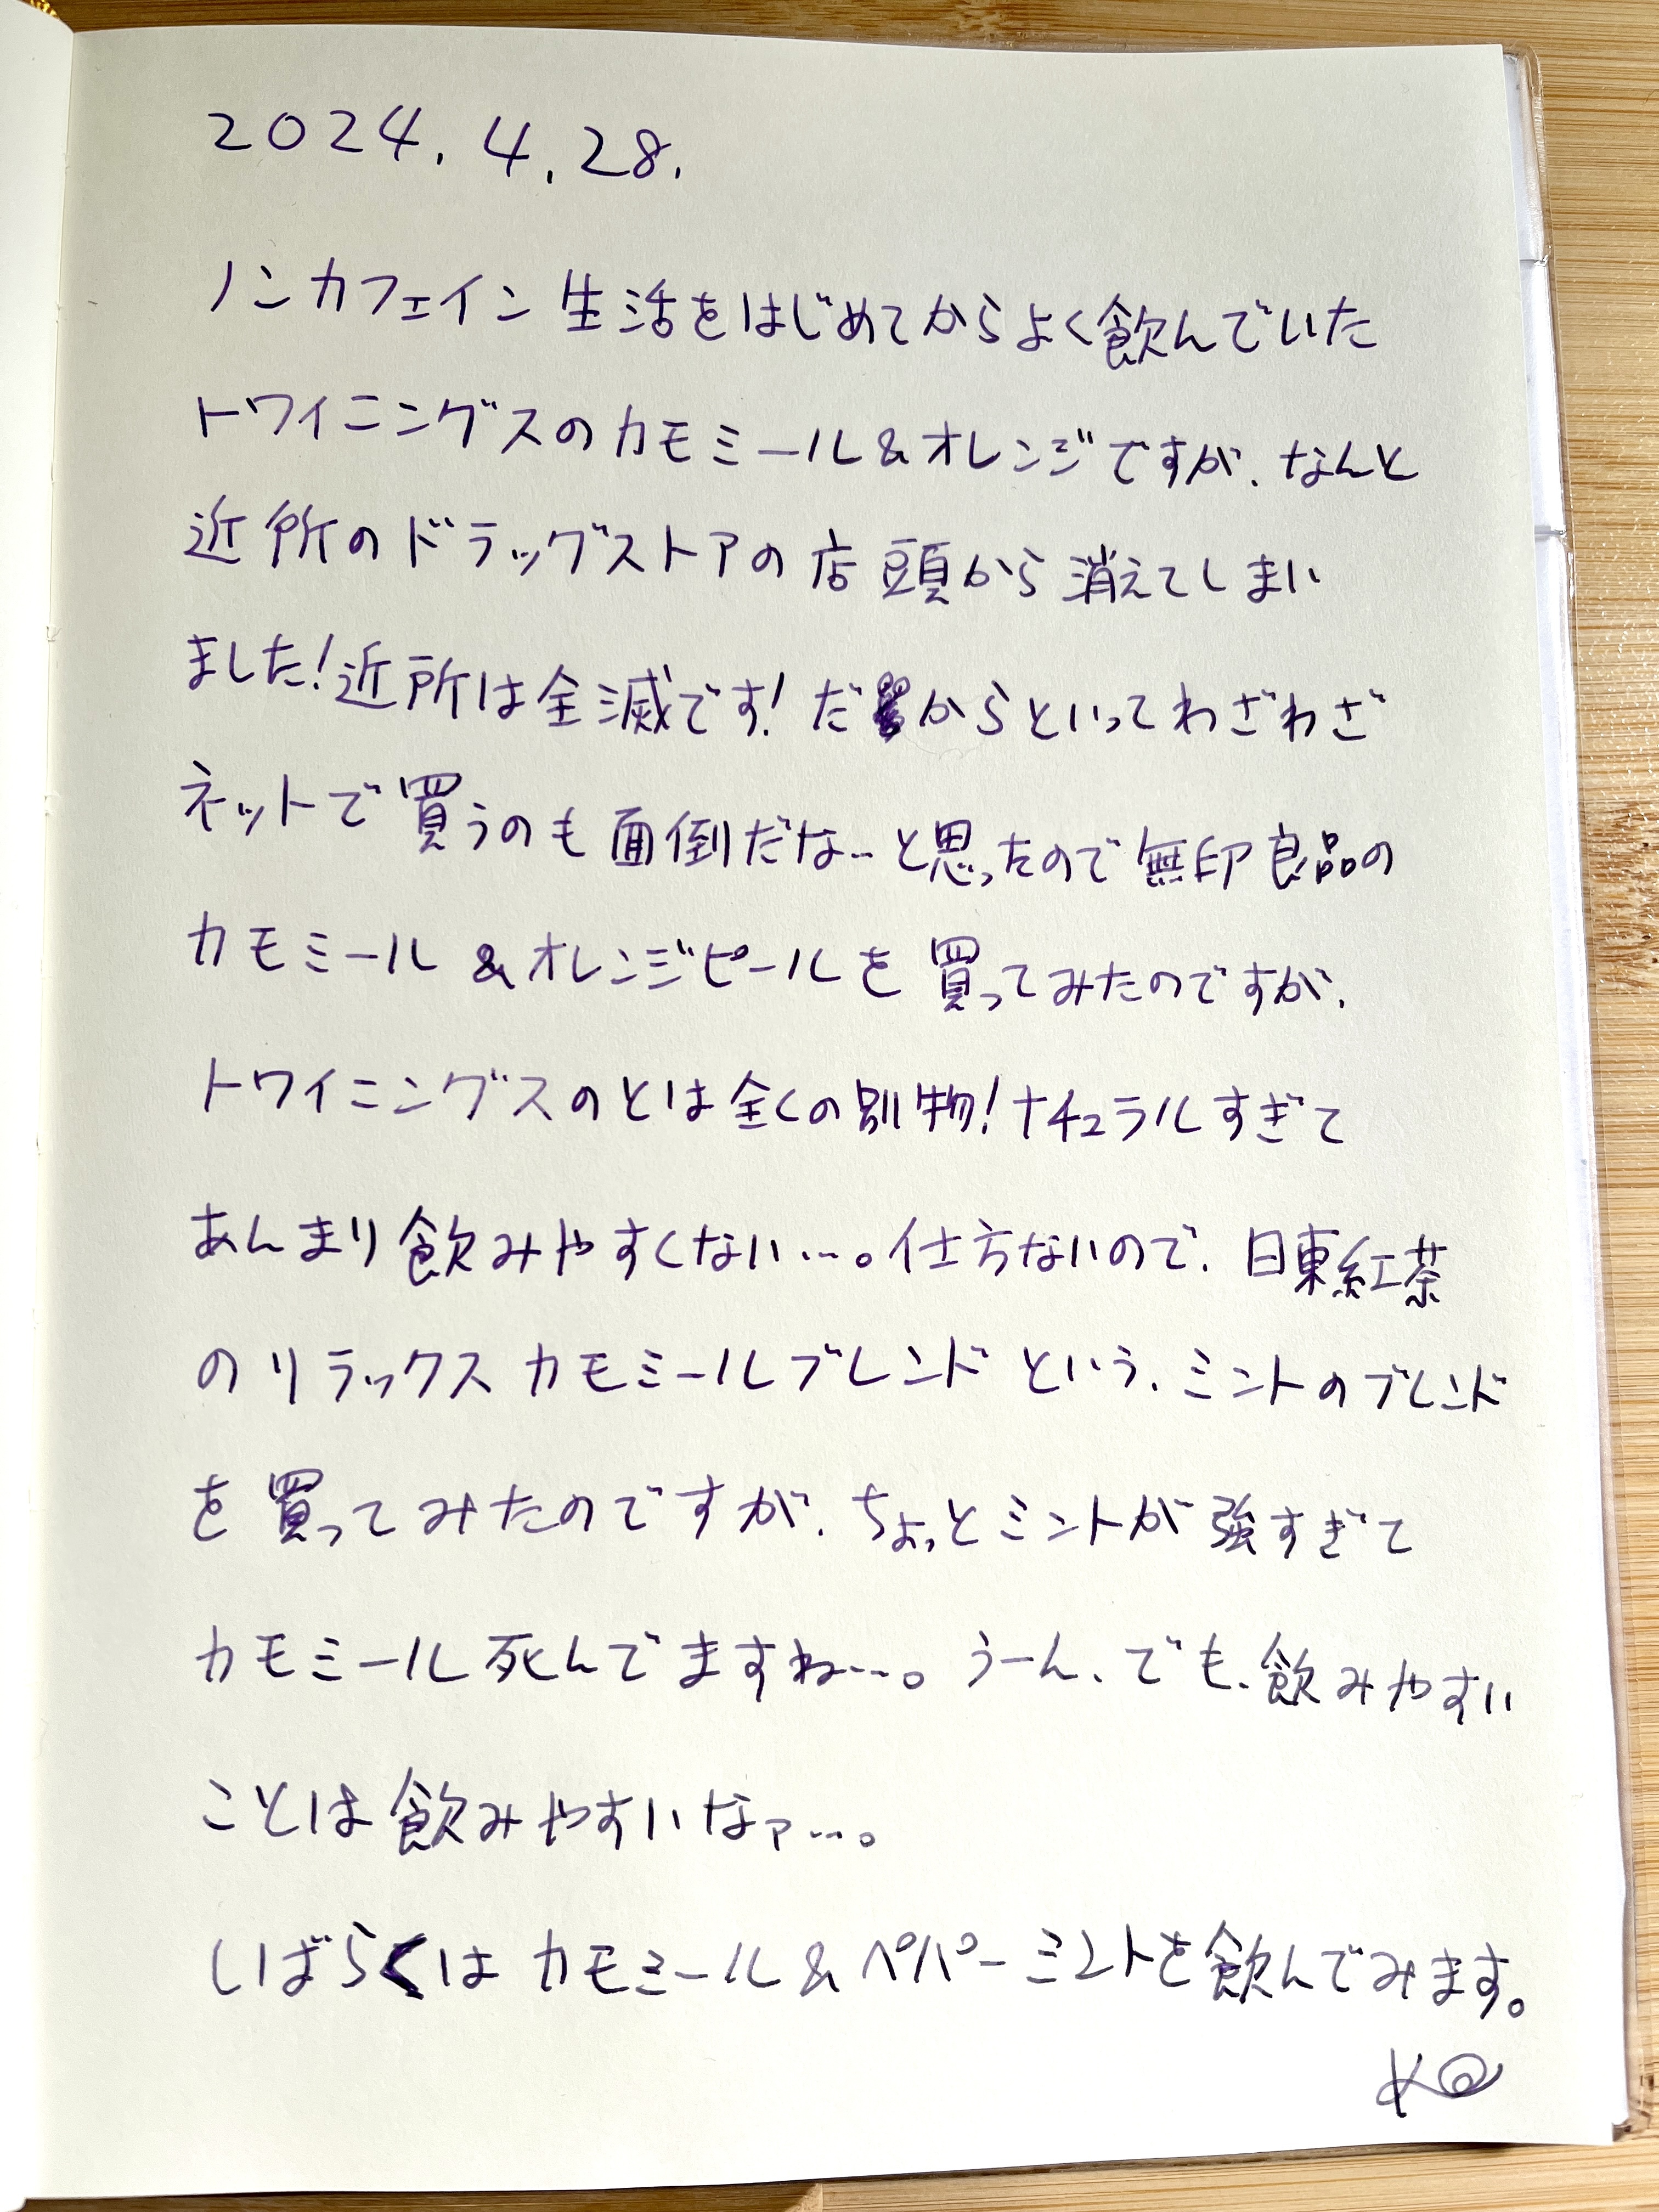 2024.4.28.
ノンカフェイン生活をはじめてからよく飲んでいた
トワイニングスのカモミール&オレンジですが、なんと
近所のドラッグストアの店頭から消えてしまい
ました!近所は全滅です!だからといってわざわざ
ネットで買うのも面倒だな…と思ったので無印良品の
カモミール&オレンジピールを買ってみたのですが、
トワイニングスのとは全くの別物!ナチュラルすぎて
あんまり飲みやすくない…。仕方ないので、日東紅茶
のリラックスカモミールブレンドという、ミントのブレンド
を買ってみたのですが、ちょっとミントが強すぎて
カモミール死んでますね…。うーん、でも、飲みやすい
ことは飲みやすいなァ…。
しばらくはカモミール&ペパーミントを飲んでみます。